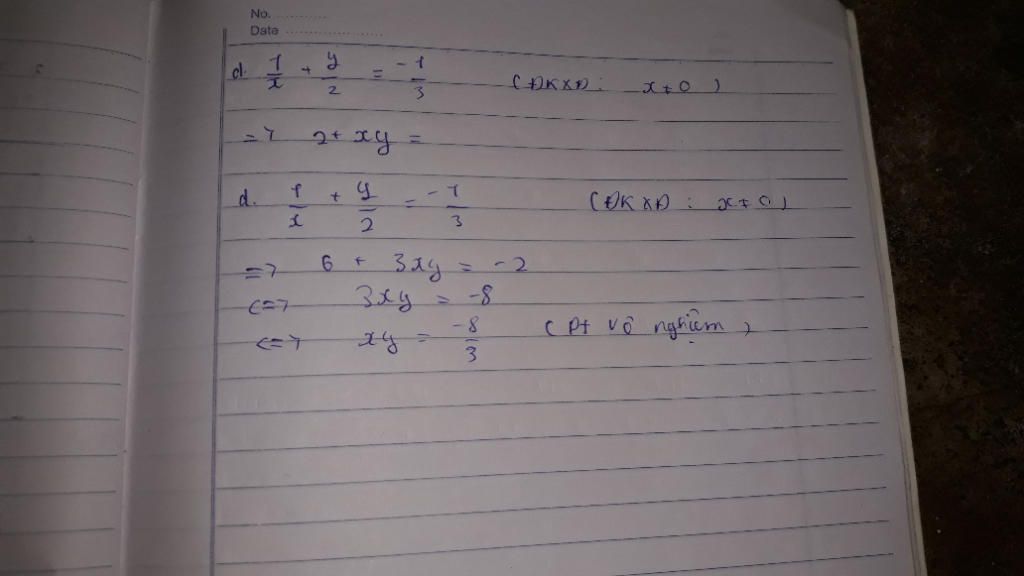 No. ............
Date ......................
d. 1/x + y/2 = -1/3 (ĐKXĐ: x≠0)
=> 2 + xy =
d. 1/x + y/2 = -1/3 (ĐKXĐ: x≠0)
=> 6 + 3xy = -2
<=> 3xy = -8
<=> xy = -8/3 (Pt vô nghiệm)